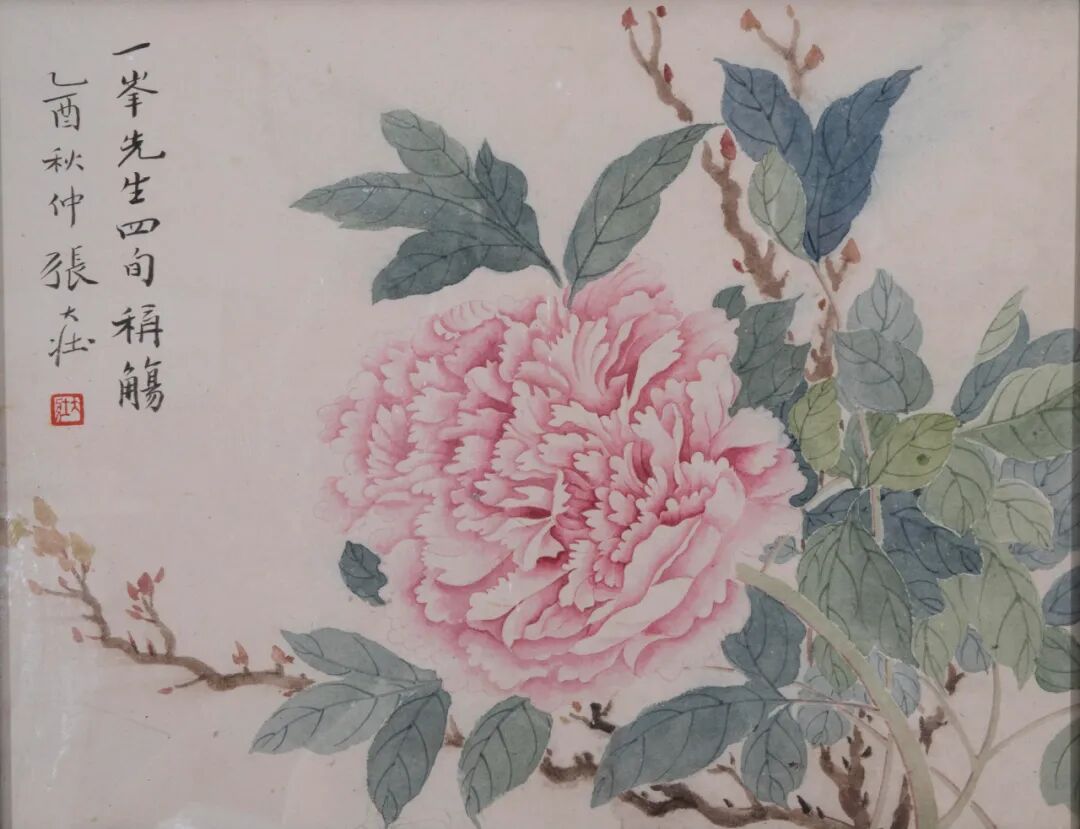 一峯先生四旬稱觴
乙酉秋仲張大壯
大壯